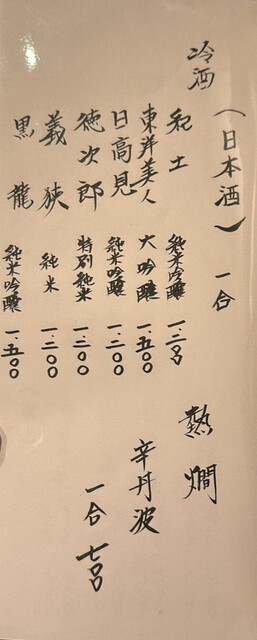 （日本酒） 一合
冷酒
紀土 純米吟醸 一.二〇〇
東洋美人 大吟醸 一.五〇〇
日高見 純米吟醸 一.二〇〇
徳次郎 特別純米 一.二〇〇
義侠 純米 一.二〇〇
黒龍 純米吟醸 一.五〇〇
熱燗
辛丹波
一合 七〇〇